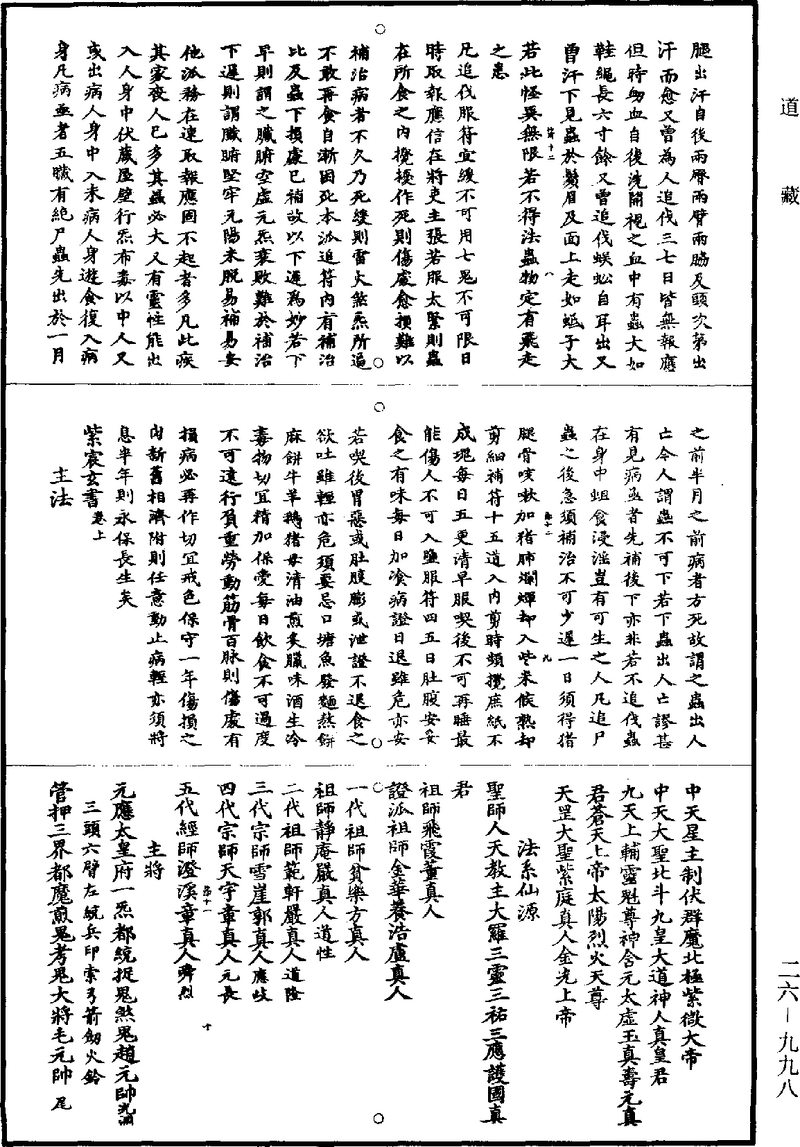 道藏
腿出汗自後兩脣兩臂兩脇及頭次第出
汗而愈又曾爲人追伐三七日皆無報應
但時衂血自後洗開視之血中有蟲大如
鞋繩長六寸餘又曾追伐蜈蚣自耳出又
曾汗下見蟲於鬚眉及面上走如蛾子大
若此怪異無限若不得法蟲物定有飛走
之患
凡追伐服符宜緩不可用七鬼不可限日
時取報應信在將吏主張若服太緊則蟲
在所食之內攪擾作死則傷處愈損難以
補治病者不久乃死緩則雷火煞炁所逼
不敢再食自漸困死本派追符內有補治
比及蟲下損處已補故以下遲爲妙若下
早則謂之臟腑空虛元炁衰敗難於補治
下遲則謂臟腑堅牢元陽未脫易補易安
他派務在速取報應固不起者多凡此疾
其家喪人已多其蟲必大又有靈性能出
入人身中伏藏屋壁行炁布毒以中人又
或出病人身中入未病人身遊食復入病
身凡病亟者五臟有絕尸蟲先出於一月
之前半月之前病者方死故謂之蟲出人
亡今人謂蟲不可下若下蟲出人亡謬甚
有見病亟者先補後下亦非若不追伐蟲
在身中蛆食浸淫豈有可生之人凡追尸
蟲之後急須補治不可少遲一日須得猪
腿骨咳嗽加猪肺爛燀却入些米候熟却
剪細補符十五道入內剪時頻攪庶紙不
成塊每日五更清早服喫後不可再睡最
能傷人不可入鹽服符四五日肚腹安妥
食之有味每日加飡病證日退雖危亦安
若喫後胃惡或肚腹膨或泄證不退食之
欲吐雖輕亦危須要忌口塘魚發麵熬餅
麻餅牛羊鵝猪母清油煎炙臘味酒生冷
毒物切宜精加保愛每日飲食不可過度
不可遠行負重勞動筋骨百脉則傷處有
損病必再作切宜戒色保守一年傷損之
內新舊相濟附則任意動止病輕亦須將
息半年則永保長生矣
紫宸玄書卷上
主法
中天星主制伏群魔北極紫微大帝
中天大聖北斗九皇大道神人真皇君
九天上輔靈魁尊神含元太虛玉真壽元真
君蒼天上帝太陽烈火天尊
天罡大聖紫庭真人金光上帝
法系仙源
聖師人天教主大羅三靈三祐三應護國真
君
祖師飛霞董真人
證派祖師金華養浩盧真人
一代祖師貧樂方真人
祖師靜庵嚴真人道性
二代祖師範軒嚴真人道隆
三代宗師雪崖郭真人應岐
四代宗師天宇章真人元長
五代經師澄溪章真人舜烈
主將
元應太皇府一炁都統捉鬼煞鬼趙元帥
三頭六臂左統兵印索弓箭劒火鈴
管押三界都魔煎鬼考鬼大將毛元帥 尾
二六—九九八